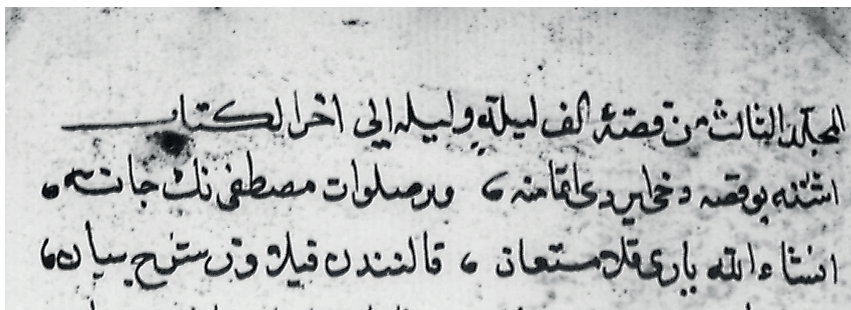 المجلد الثالث من قصة الف ليلة وليله الي اخر الكتاب
اشته بو قصه دخي ايردي اقامنه ، وير صلوات مصطفى نك جاننه ،
انشاء الله ياري قلا مستعان ، قالنندن قيلاوز